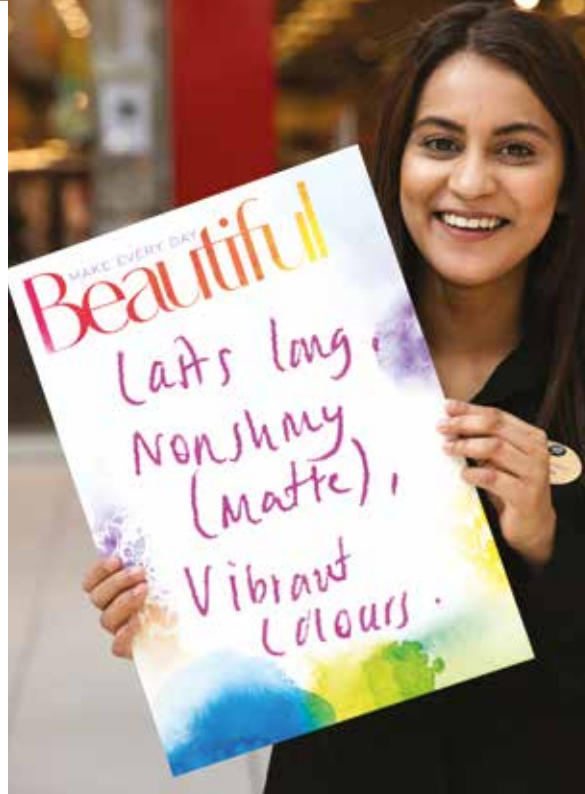 MAKE EVERY DAY
Beautiful
Lasts long,
Nonshiny
(Matte),
Vibrant
Colours.